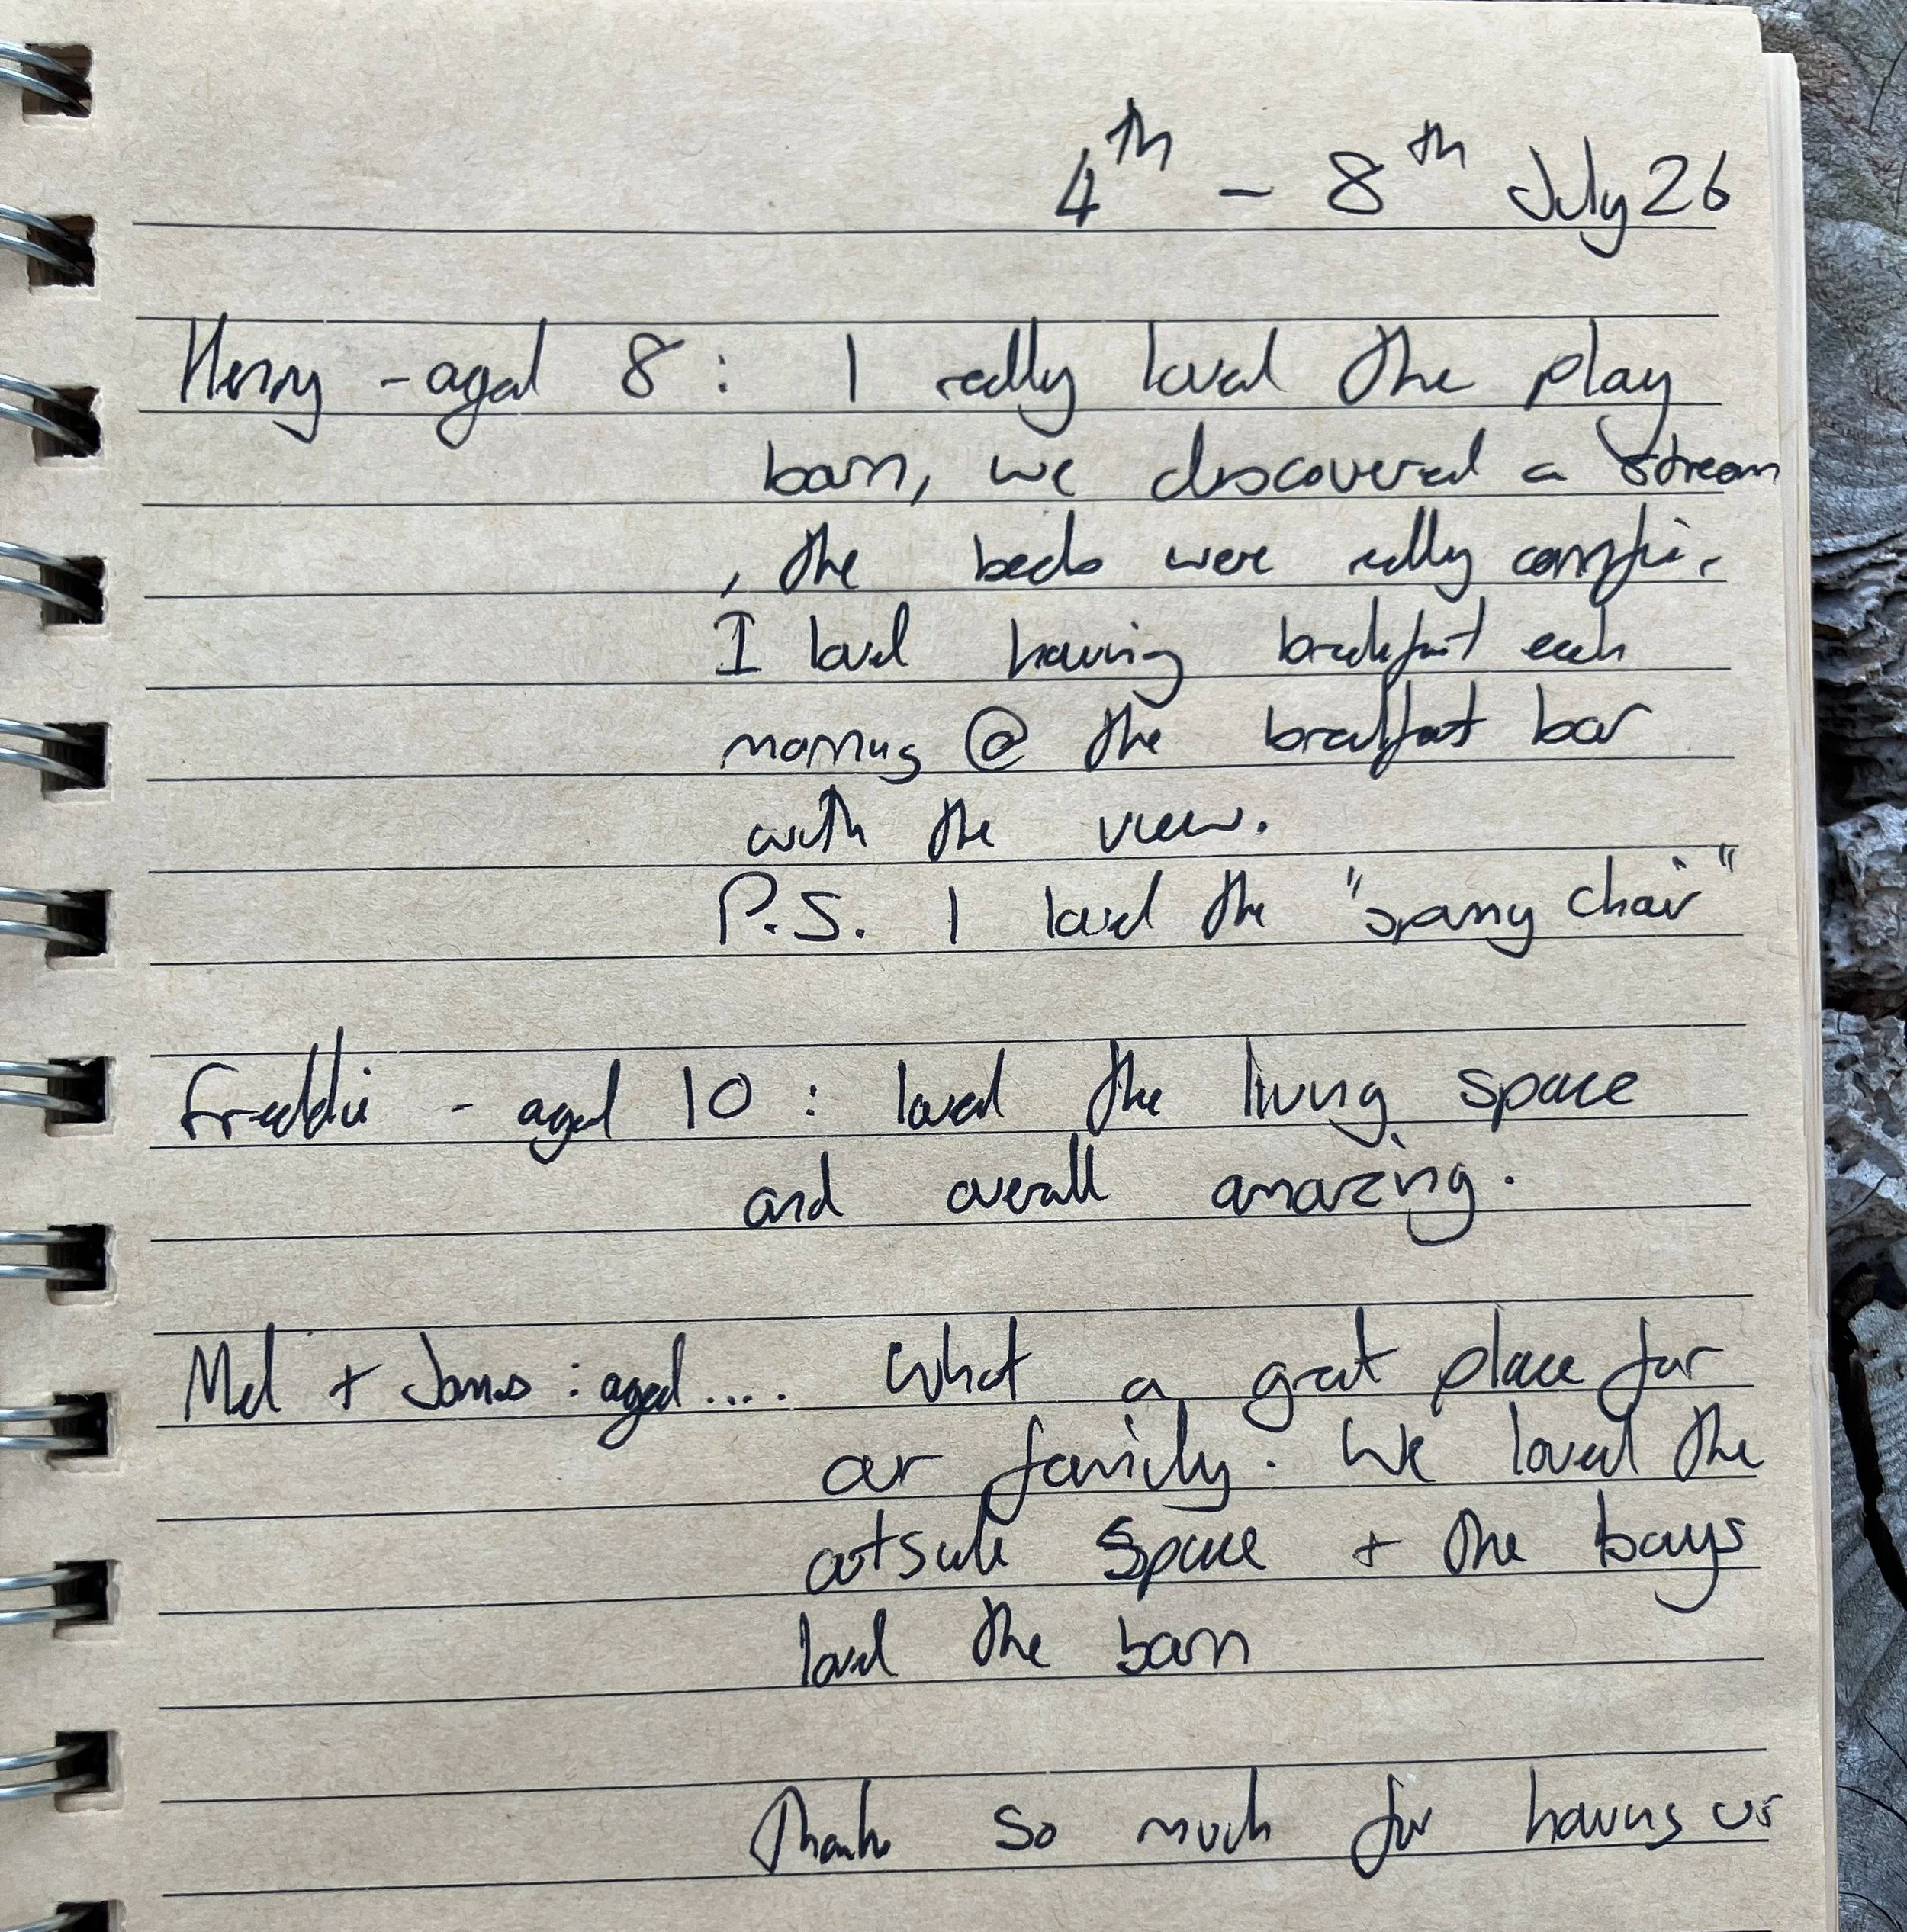 4th - 8th July 26
Henry - aged 8 : I really loved the play
barn, we discovered a stream
, the beds were really comfi.
I loved having breakfast each
morning @ the breakfast bar
with the view.
P.S. I loved the " chair"
Freddie - aged 10 : loved the living space
and overall amazing.
Mel + James : aged .... What a great place for
our family. We loved the
outside space + the boys
loved the barn
Thanks so much for having us